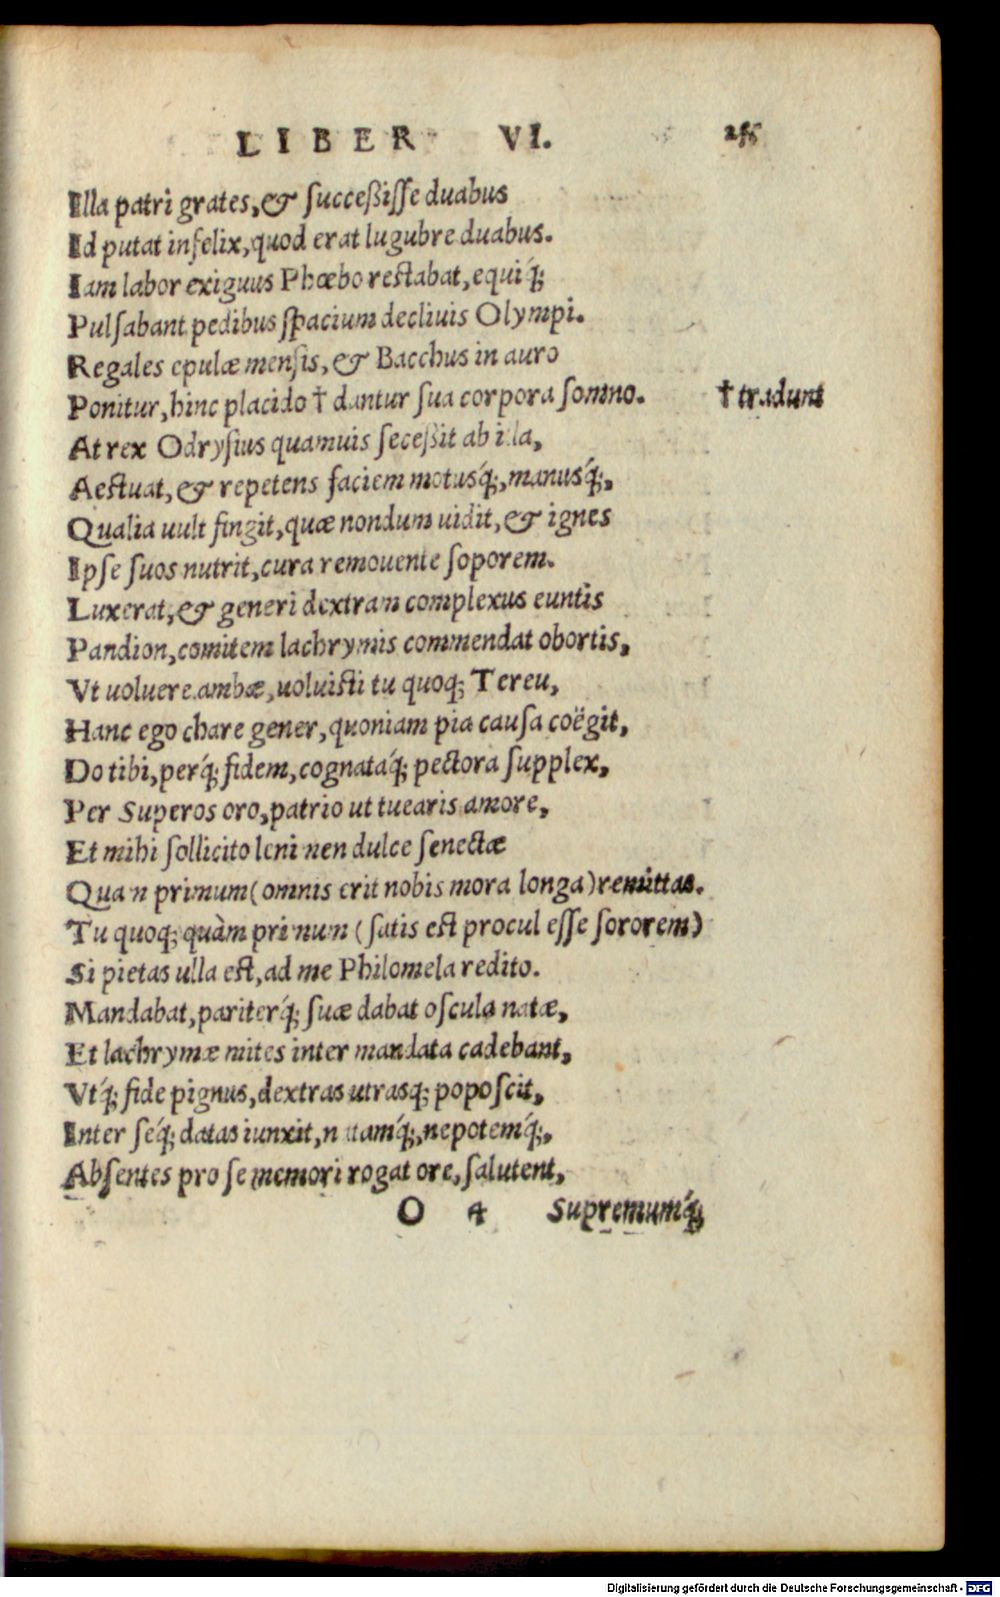 LIBER VI.
Illa patri grates, & succeßisse duabus
Id putat infelix, quod erat lugubre duabus.
Iam labor exiguus Phœbo restabat, equiq́;
Pulsabant pedibus spacium decliuis Olympi.
Regales epulæ mensis, & Bacchus in auro
Ponitur, hinc placido † dantur sua corpora somno. † tradunt
At rex Odrysius quamuis seceßit ab illa,
Aestuat, & repetens faciem motusq́;, manusq́;,
Qualia uult fingit, quæ nondum uidit, & ignes
Ipse suos nutrit, cura remouente soporem.
Luxerat, & generi dextram complexus euntis
Pandion, comitem lachrymis commendat obortis,
Vt uoluere ambæ, uoluisti tu quoq; Tereu,
Hanc ego chare gener, quoniam pia causa coëgit,
Do tibi, perq́; fidem, cognataq́; pectora supplex,
Per Superos oro, patrio ut tuearis amore,
Et mihi sollicito lenimen dulce senectæ
Quam primum (omnis erit nobis mora longa) remittas.
Tu quoq; quàm primum (satis est procul esse sororem)
Si pietas ulla est, ad me Philomela redito.
Mandabat, pariterq́; suæ dabat oscula natæ,
Et lachrymæ mites inter mandata cadebant,
Vtq́; fide pignus, dextras utrasq; poposcit,
Inter seq́; datas iunxit, natamq́;, nepotemq́;,
Absentes pro se memori rogat ore, salutent,
O 4 Supremumq́;
Digitalisierung gefördert durch die Deutsche Forschungsgemeinschaft - DFG